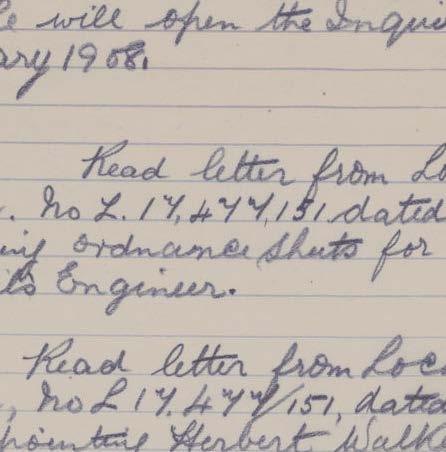 will open the Inqui
ary 1908.
Read letter from Lo
. No L. 17,477,151 dated
ing ordnance sheets for
il's Engineer.
Read letter from Loc
, No L 17.477/151, dated
pointing Herbert Walk